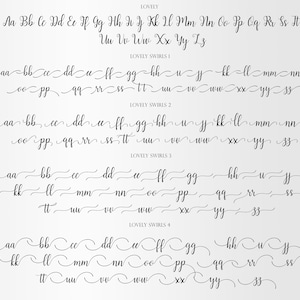 LOVELY
Aa Bb Cc Dd Ee Ff Gg Hh Ii Jj Kk Ll Mm Nn Oo Pp Qq Rr Ss Tt
Uu Vv Ww Xx Yy Zz
LOVELY SWIRLS 1
aa bb cc dd ee ff gg hh ii jj kk ll mm nn
oo pp qq rr ss tt uu vv ww xx yy zz
LOVELY SWIRLS 2
aa bb cc dd ee ff gg hh ii jj kk ll mm nn
oo pp qq rr ss tt uu vv ww xx yy zz
LOVELY SWIRLS 3
aa bb cc dd ee ff gg hh ii jj
kk ll mm nn oo pp qq rr ss
tt uu vv ww xx yy zz
LOVELY SWIRLS 4
aa bb cc dd ee ff gg hh ii jj
kk ll mm nn oo pp qq rr ss
tt uu vv ww xx yy zz